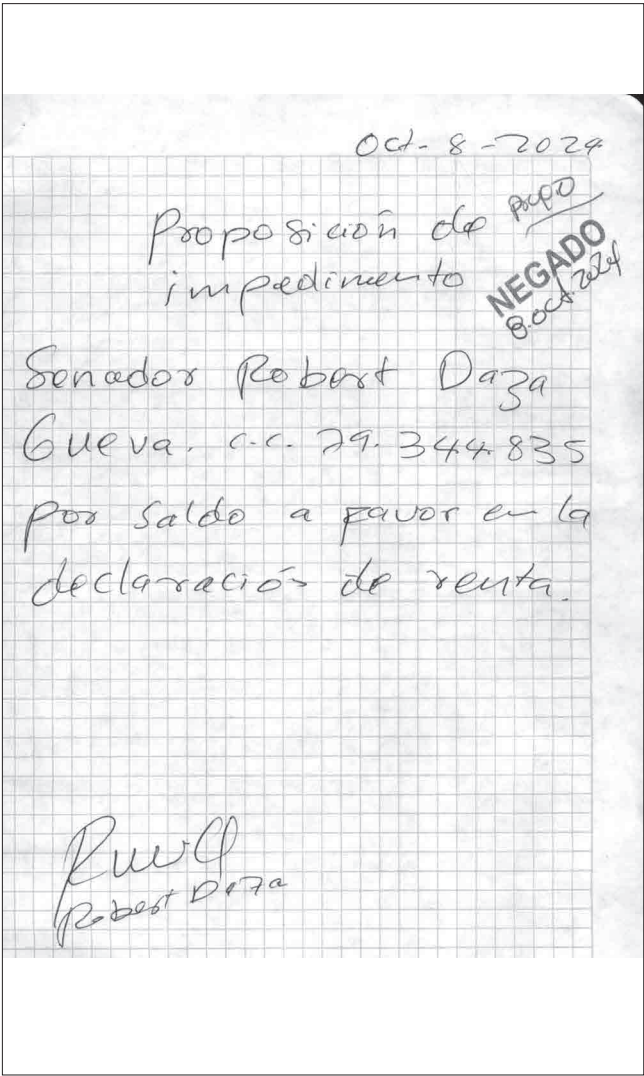 Oct- 8 - 2024
Proposición de
impedimento
NEGADO
8.oct.2024
Senador Robert Daza
Gueva. c.c. 79.344.835
por saldo a favor en la
declaración de renta.
Robert Daza